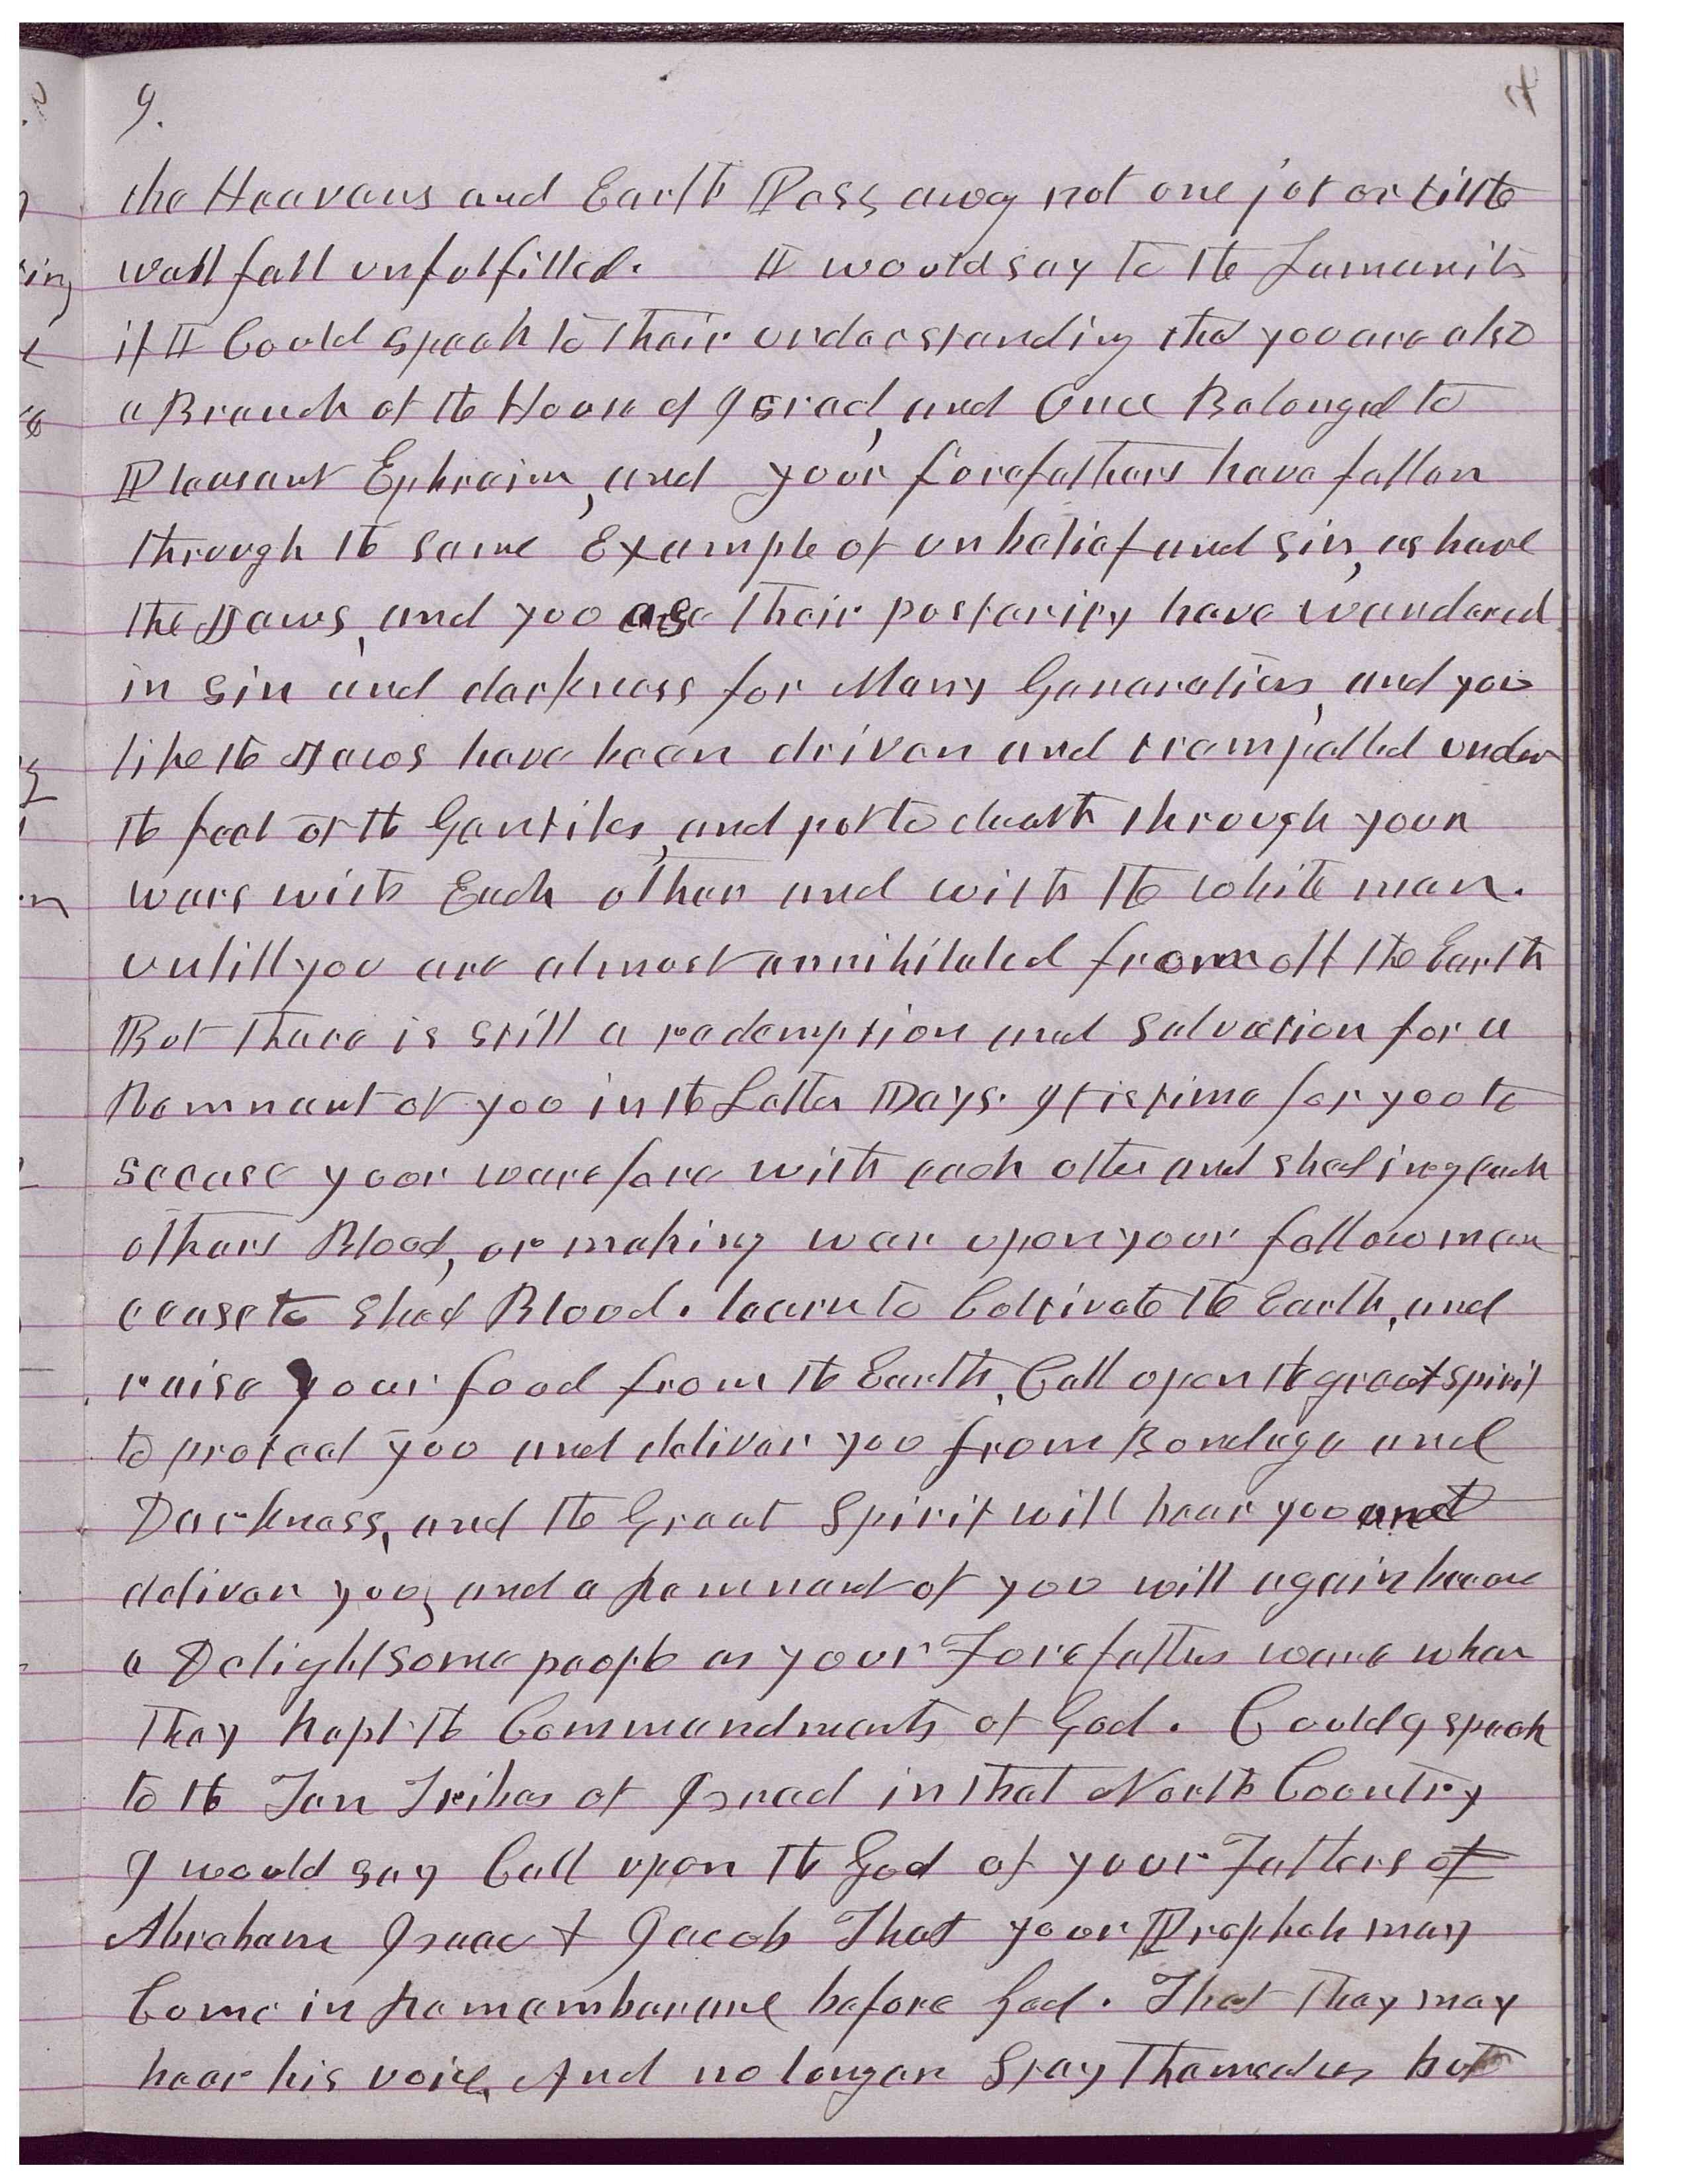 9.
the Heavens and Earth Pass away not one jot or tittle
wall fall unfulfilled. I would say to the Lamanits
if I Could speak to their understanding that you are also
a Branch of the House of Israel, and Once Belonged to
Pleasant Ephraim, and your forefathers have fallen
through the same Example of unbelief and sin, as have
the Jews, and you are their posterity have wandered
in sin and darkness for Many Generations, and you
like the Jews have been driven and trampelled under
the feet of the Gentiles, and put to death through your
wars with Each other and with the white man.
untill you are almost annihilated from off the Earth
But there is still a redemption and salvation for a
Remnant of you in the Latter Days. It is time for you to
seease your warefare with each other and sheding each
others Blood, or making war upon your fellow man
cease to shed Blood. learn to Cultivate the Earth, and
raise your food from the Earth, Call upon the great spirit
to protect you and deliver you from Bondage and
Darkness, and the Great Spirit will hear you and
deliver you, and a Remnant of you will again become
a Delightsome people as your Forefathers were when
they kept the Commandments of God. Could I speak
to the Ten Tribes of Israel in that North Country
I would say Call upon the God of your Fathers of
Abraham Isaac & Jacob That your Prophets may
Come in Remembrance before God. That they may
hear his voice, And no longer Stay themselves but